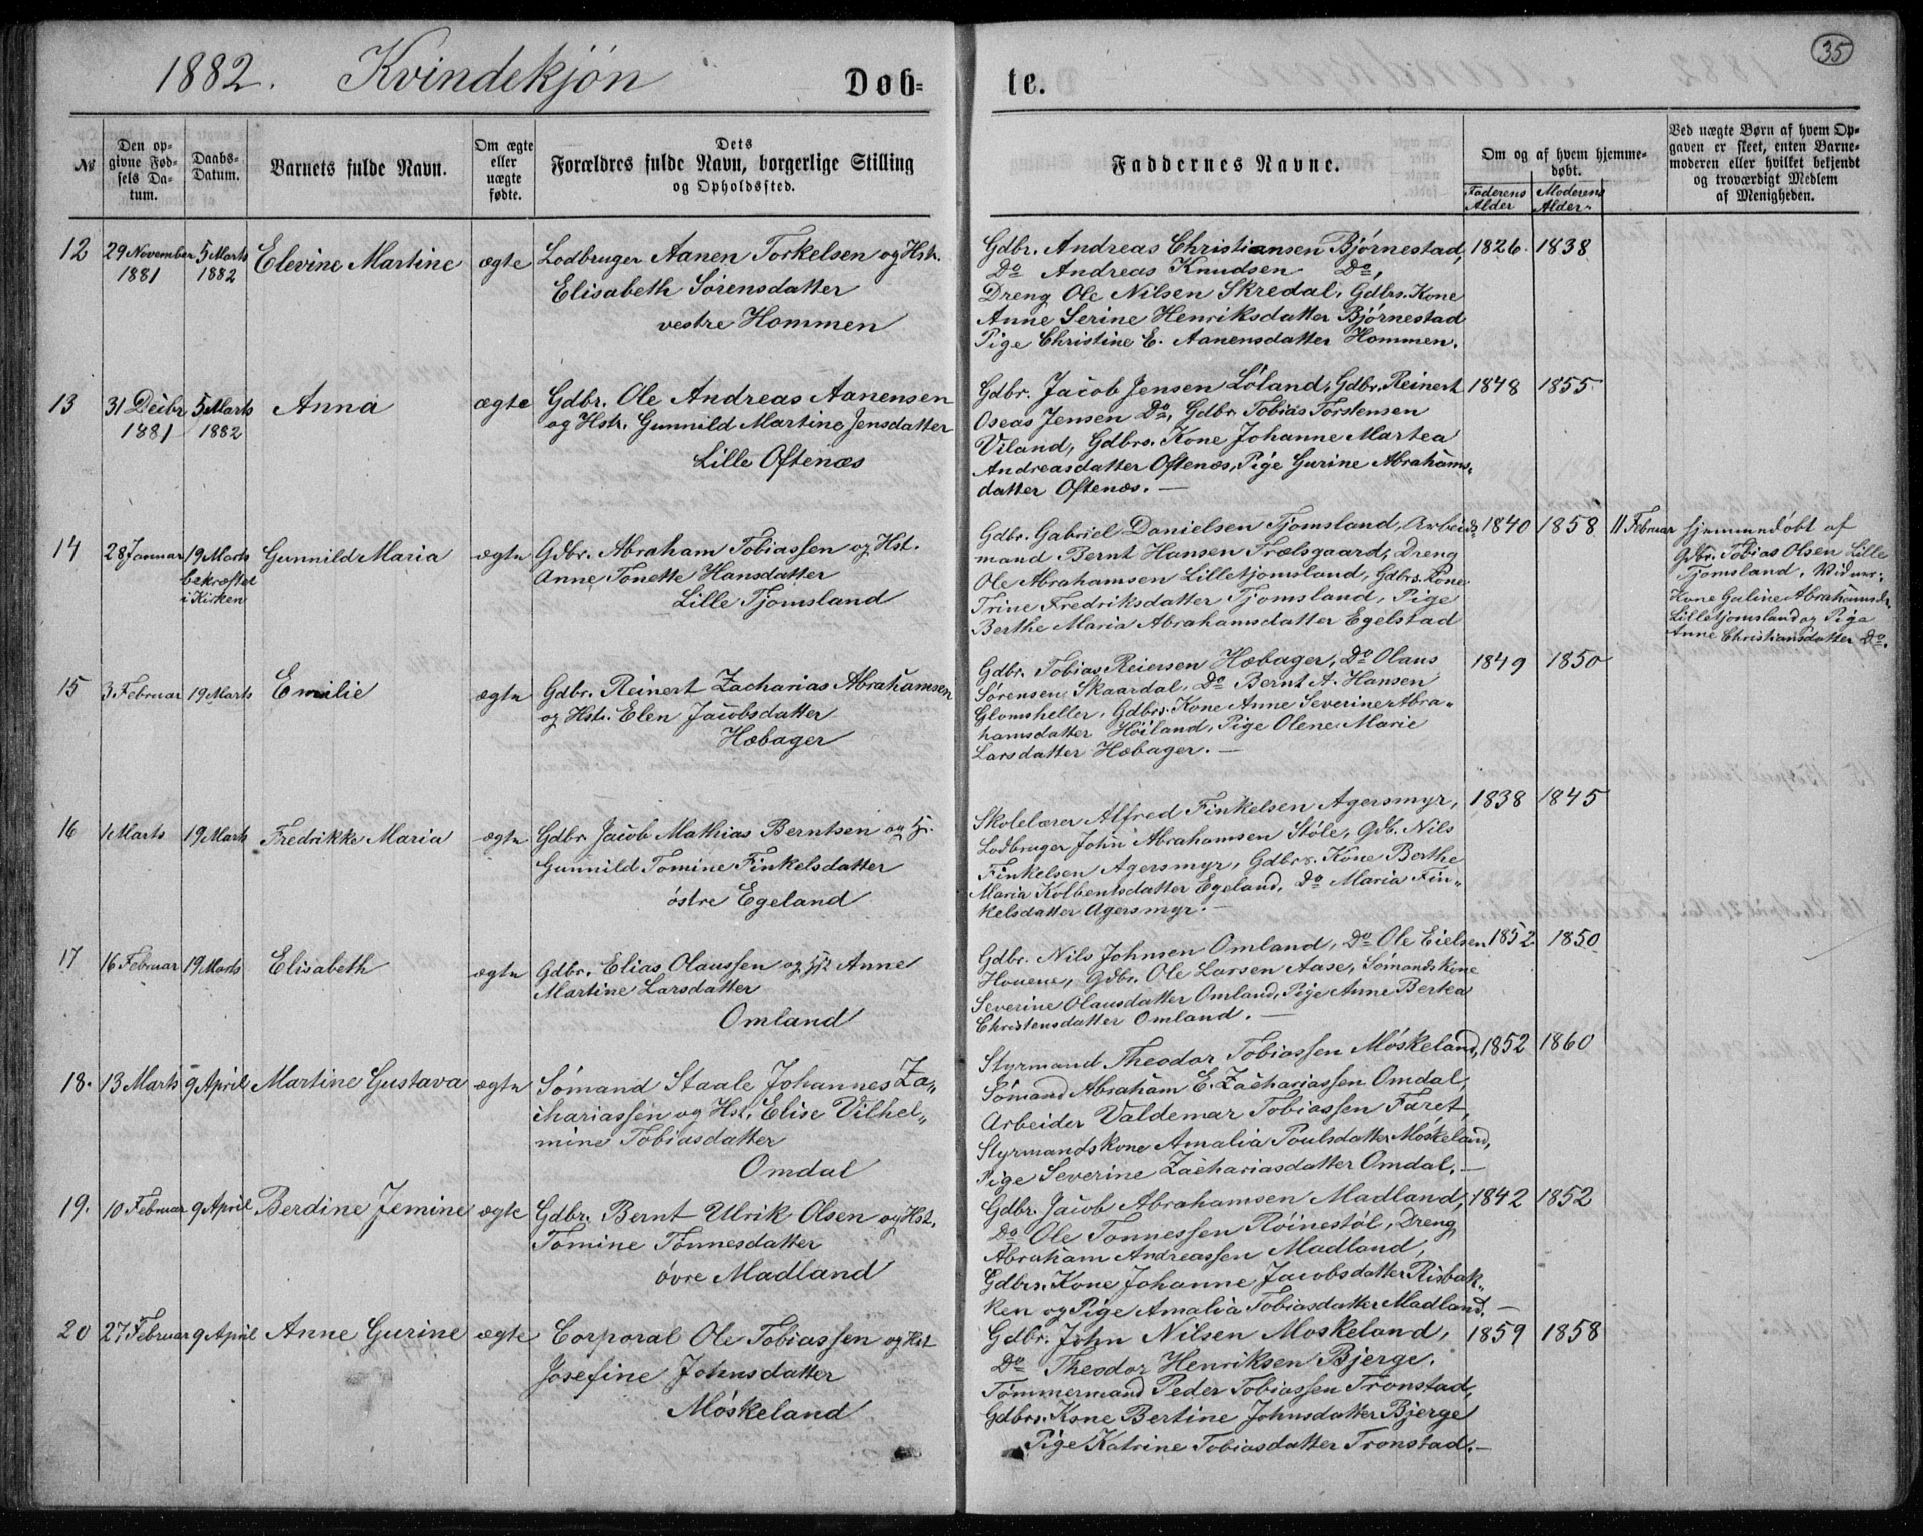 1882. Kvindekjøn Døb-
te.
35
№
Den op-
givne Fød-
sels Da-
tum.
Daabs-
Datum.
Barnets fulde Navn.
Om ægte
eller
uægte
fødte.
Dets
Forældres fulde Navn, borgerlige Stilling
og Opholdssted.
Faddernes Navne.
Om og af hvem hjemme-
døbt.
Faderens
Alder
Moderens
Alder
Ved uægte Børn af hvem Op-
gaven er skeet, enten Barne-
moderen eller hvilket bekjendt
og troværdigt Medlem
af Menigheden.
12
29 November
1881
5 Marts
1882
Elevine Martine
ægte
Lodbruger Aanen Torkelsen og Hstr.
Elisabeth Sørensdatter
vestre Hommen
Gdbr. Andreas Christiansen Bjørnestad,
Do Andreas Knudsen Do,
Dreng Ole Nilsen Skredal, Gdbrs. Kone
Anne Serine Henriksdatter Bjørnestad
Pige Christine E. Aanensdatter Hommen.
1826. 1838
13
31 Decbr
1881
5 Marts
1882
Anna
ægte
Gdbr. Ole Andreas Aanensen
og Hstr. Gunnild Martine Jensdatter
Lille Oftenæs
Gdbr. Jacob Jensen Løland, Gdbr. Reinert
Oseas Jensen Do, Gdbr. Tobias Torstensen
Viland, Gdbrs. Kone Johanne Martea
Andreasdatter Oftenæs, Pige Gurine Abrahams-
datter Oftenæs. —
1848 1855
14
28 Januar
19 Marts
bekræftet
i Kirken
Gunnild Maria
ægte
Gdbr. Abraham Tobiassen og Hst.
Anne Tonette Hansdatter
Lille Tjomsland
Gdbr. Gabriel Danielsen Tjomsland, Arbeids-
mand Bernt Hansen Trælsgaard, Dreng
Ole Abrahamsen Lilletjomsland, Gdbrs. Kone
Trine Fredriksdatter Tjomsland, Pige
Berthe Maria Abrahamsdatter Egelstad
1840 1858 11 Februar
hjemmedøbt af
Gdbr. Tobias Olsen Lille
Tjomsland. Vidner:
Kone Galine Abrahamsdr.
Lilletjomsland og Pige
Anne Christiansdatter Do.
15
3. Februar
19 Marts
Emilie
ægte
Gdbr. Reinert Zacharias Abrahamsen
og Hstr. Elen Jacobsdatter
Hæbager
Gdbr. Tobias Reiersen Hæbager, Do Olaus
Sørensen Skaardal, Do Bernt A. Hansen
Glomsheller, Gdbrs. Kone Anne Severine Abra-
hamsdatter Høiland, Pige Olene Marie
Larsdatter Hæbager. —
1849 1850
16
1 Marts
19 Marts
Fredrikke Maria
ægte
Gdbr. Jacob Mathias Berntsen og Hr.
Gunnild Tomine Finkelsdatter
østre Egeland
Skolelærer Alfred Finkelsen Agersmyr,
Lodbruger John Abrahamsen Støle, Gdb. Nils
Finkelsen Agersmyr, Gdbrs. Kone Berthe
Maria Kolbentsdatter Egeland, Do Maria Fin-
kelsdatter Agersmyr. —
1838 1845
17
16 Februar
19 Marts
Elisabeth
ægte
Gdbr. Elias Olaussen og Hst. Anne
Martine Larsdatter
Omland
Gdbr. Nils Johnsen Omland, Do Ole Eielsen
Houene, Gdbr. Ole Larsen Aase, Sømandskone
Severine Olausdatter Omland, Pige Anne Bertea
Christensdatter Omland. —
1852 1850
18.
13 Marts
9 April
Martine Gustava
ægte
Sømand Staale Johannes Za-
chariassen og Hst. Elise Vilhel-
mine Tobiasdatter
Omdal
Styrmand Theodor Tobiassen Møskeland,
Sømand Abraham E. Zachariassen Omdal,
Arbeider Valdemar Tobiassen Faret,
Styrmandskone Amalia Poulsdatter Møskeland,
Pige Severine Zachariasdatter Omdal. —
1852 1860
19.
10 Februar
9 April
Berdine Jemine
ægte
Gdbr. Bernt Ulrik Olsen og Hst.
Tomine Tønnesdatter
øvre Madland
Gdbr. Jacob Abrahamsen Madland,
Do Ole Tønnessen Røinestøl, Dreng
Abraham Andreassen Madland,
Gdbrs. Kone Johanne Jacobsdatter Risbak-
ken og Pige Amalia Tobiasdatter Madland. —
1842 1852
20
27 Februar
9 April
Anne Gurine
ægte
Corporal Ole Tobiassen og Hst
Josefine Johnsdatter
Møskeland
Gdbr. John Nilsen Møskeland,
Do Theodor Henriksen Bjerge.
Tømmermand Peder Tobiassen Tronstad,
Gdbrs. Kone Bertine Johnsdatter Bjerge
Pige Katrine Tobiasdatter Tronstad. —
1859 1858